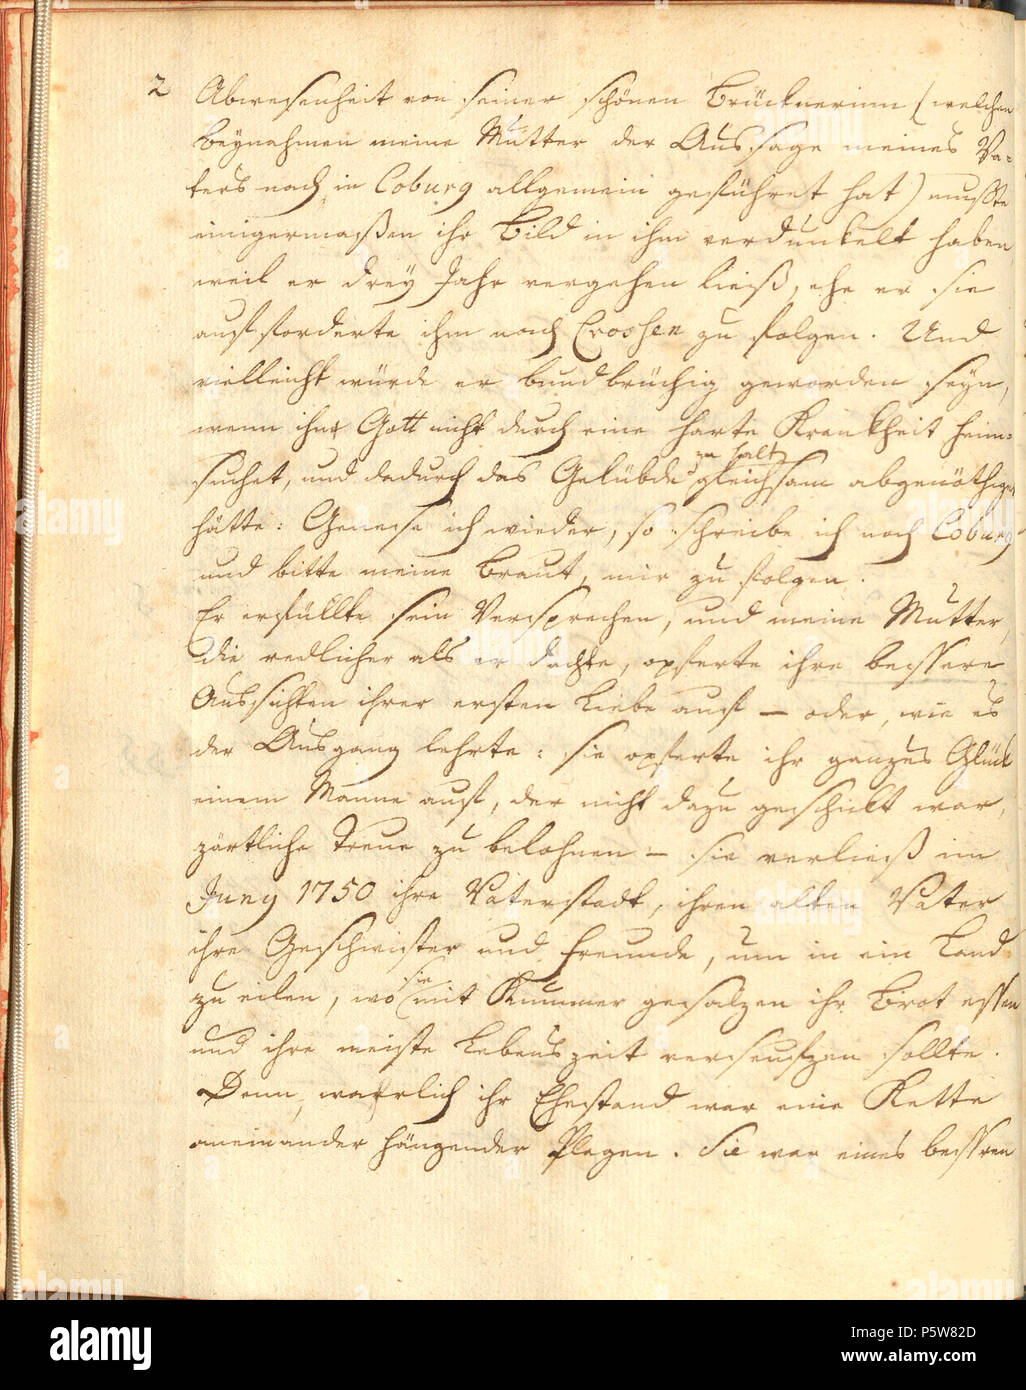 2 Abwesenheit von seiner schönen Brücknerinn (welchen
Beynahmen meine Mutter der Aussage meines Va-
ters nach in Coburg allgemein geführet hat) muste
einigermaßen ihr Bild in ihm verdunkelt haben,
weil er drey Jahr vergehen ließ, ehe er sie
aufforderte ihm nach Crossen zu folgen. Und
vielleicht würde er bundbrüchig geworden seyn,
wenn ihn Gott nicht durch eine harte Krankheit heim-
zu halt
suchet, und dadurch das Gelübde gleichsam abgenöthiget
hätte: Genese ich wieder, so schreibe ich nach Coburg
und bitte meine Braut, mir zu folgen.
Er erfüllte sein Versprechen, und meine Mutter,
die redlicher als er dachte, opferte ihre bessere
Aussichten ihrer ersten Liebe auf — oder, wie es
der Ausgang lehrte: sie opferte ihr ganzes Glück
einem Manne auf, der nicht dazu geschickt war,
zärtliche Treue zu belohnen — sie verließ im
Juny 1750 ihre Vaterstadt, ihren alten Vater
ihre Geschwister und Freunde, um in ein Land
sie
zu eilen, wo mit Kummer gesalzen ihr Brot essen
und ihre meiste Lebenszeit verseufzen sollte.
Denn, warlich ihr Ehestand war eine Kette
aneinander hängender Plagen. Sie war eines bessren
alamy
Image ID: P5W82D
www.alamy.com